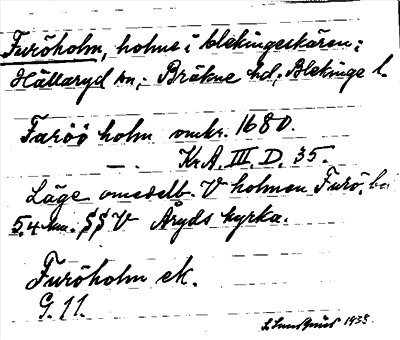 Furöholm, holme i blekingeskären;
Hällaryd sn,; Bräkne hd; Blekinge l.
Faröö holm omkr. 1680.
—. Kr.A. III. D. 35.
Läge omedelb. V holmen Furö,
5,4 km. SSV Åryds kyrka.
Furöholm ek.
G. 11.
1935